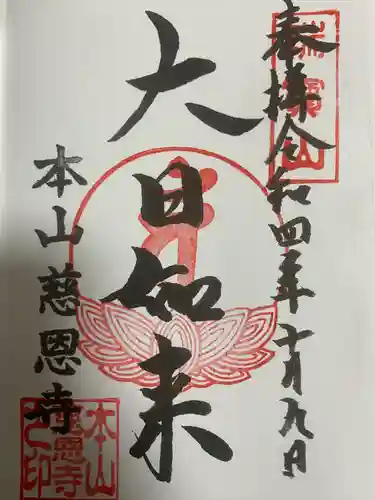 奉拝 令和四年十月九日
大日如来
本山慈恩寺
瑞寳山
本山慈恩寺之印